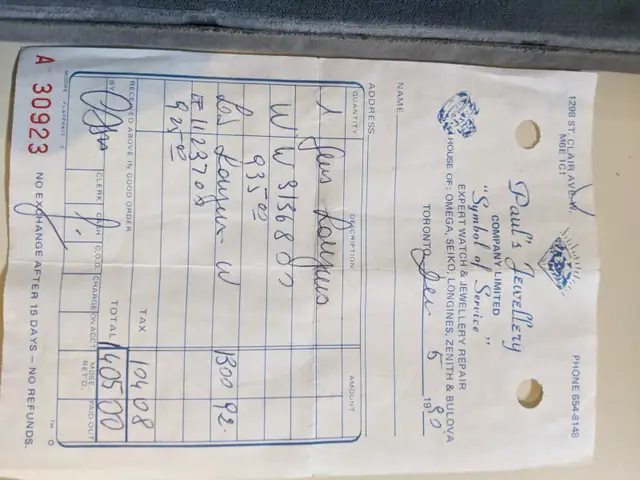 1298 ST. CLAIR AVE. W.
M6E 1C1
PHONE 654-8148
Paul's Jewellery
COMPANY LIMITED
"Symbol of Service"
EXPERT WATCH & JEWELLERY REPAIR
HOUSE OF: OMEGA, SEIKO, LONGINES, ZENITH & BULOVA
TORONTO Dec 5 1980
NAME
ADDRESS
QUANTITY DESCRIPTION AMOUNT
1
935.00
W 1300 92
# 1123708
925.00
TAX 104 08
TOTAL 1405 00
RECEIVED ABOVE IN GOOD ORDER
BY CLERK CASH C.O.D. CHARGE ON ACCT. MDSE RET'D. PAID OUT
A 30923
NO EXCHANGE AFTER 15 DAYS – NO REFUNDS.